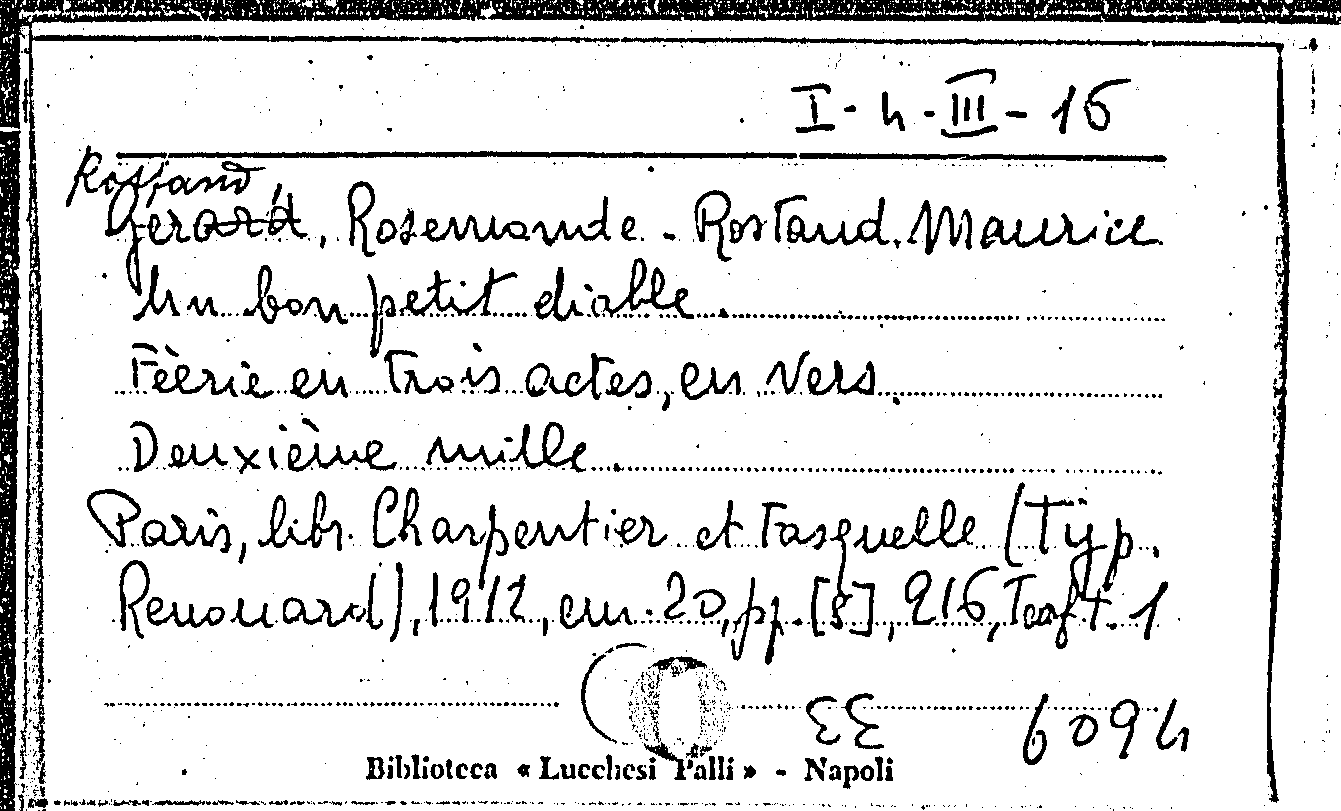 I-4-III-16
Rostand,
Gerard, Rosemonde - Rostand, Maurice
Un bon petit diable.
Féèrie en trois actes, en vers.
Deuxième mille.
Paris, libr. Charpentier et Fasquelle (Typ.
Renouard), 1912, cm. 20, pp. [8], 216, Teaft. 1
33 6094
Biblioteca « Lucchesi Palli » - Napoli